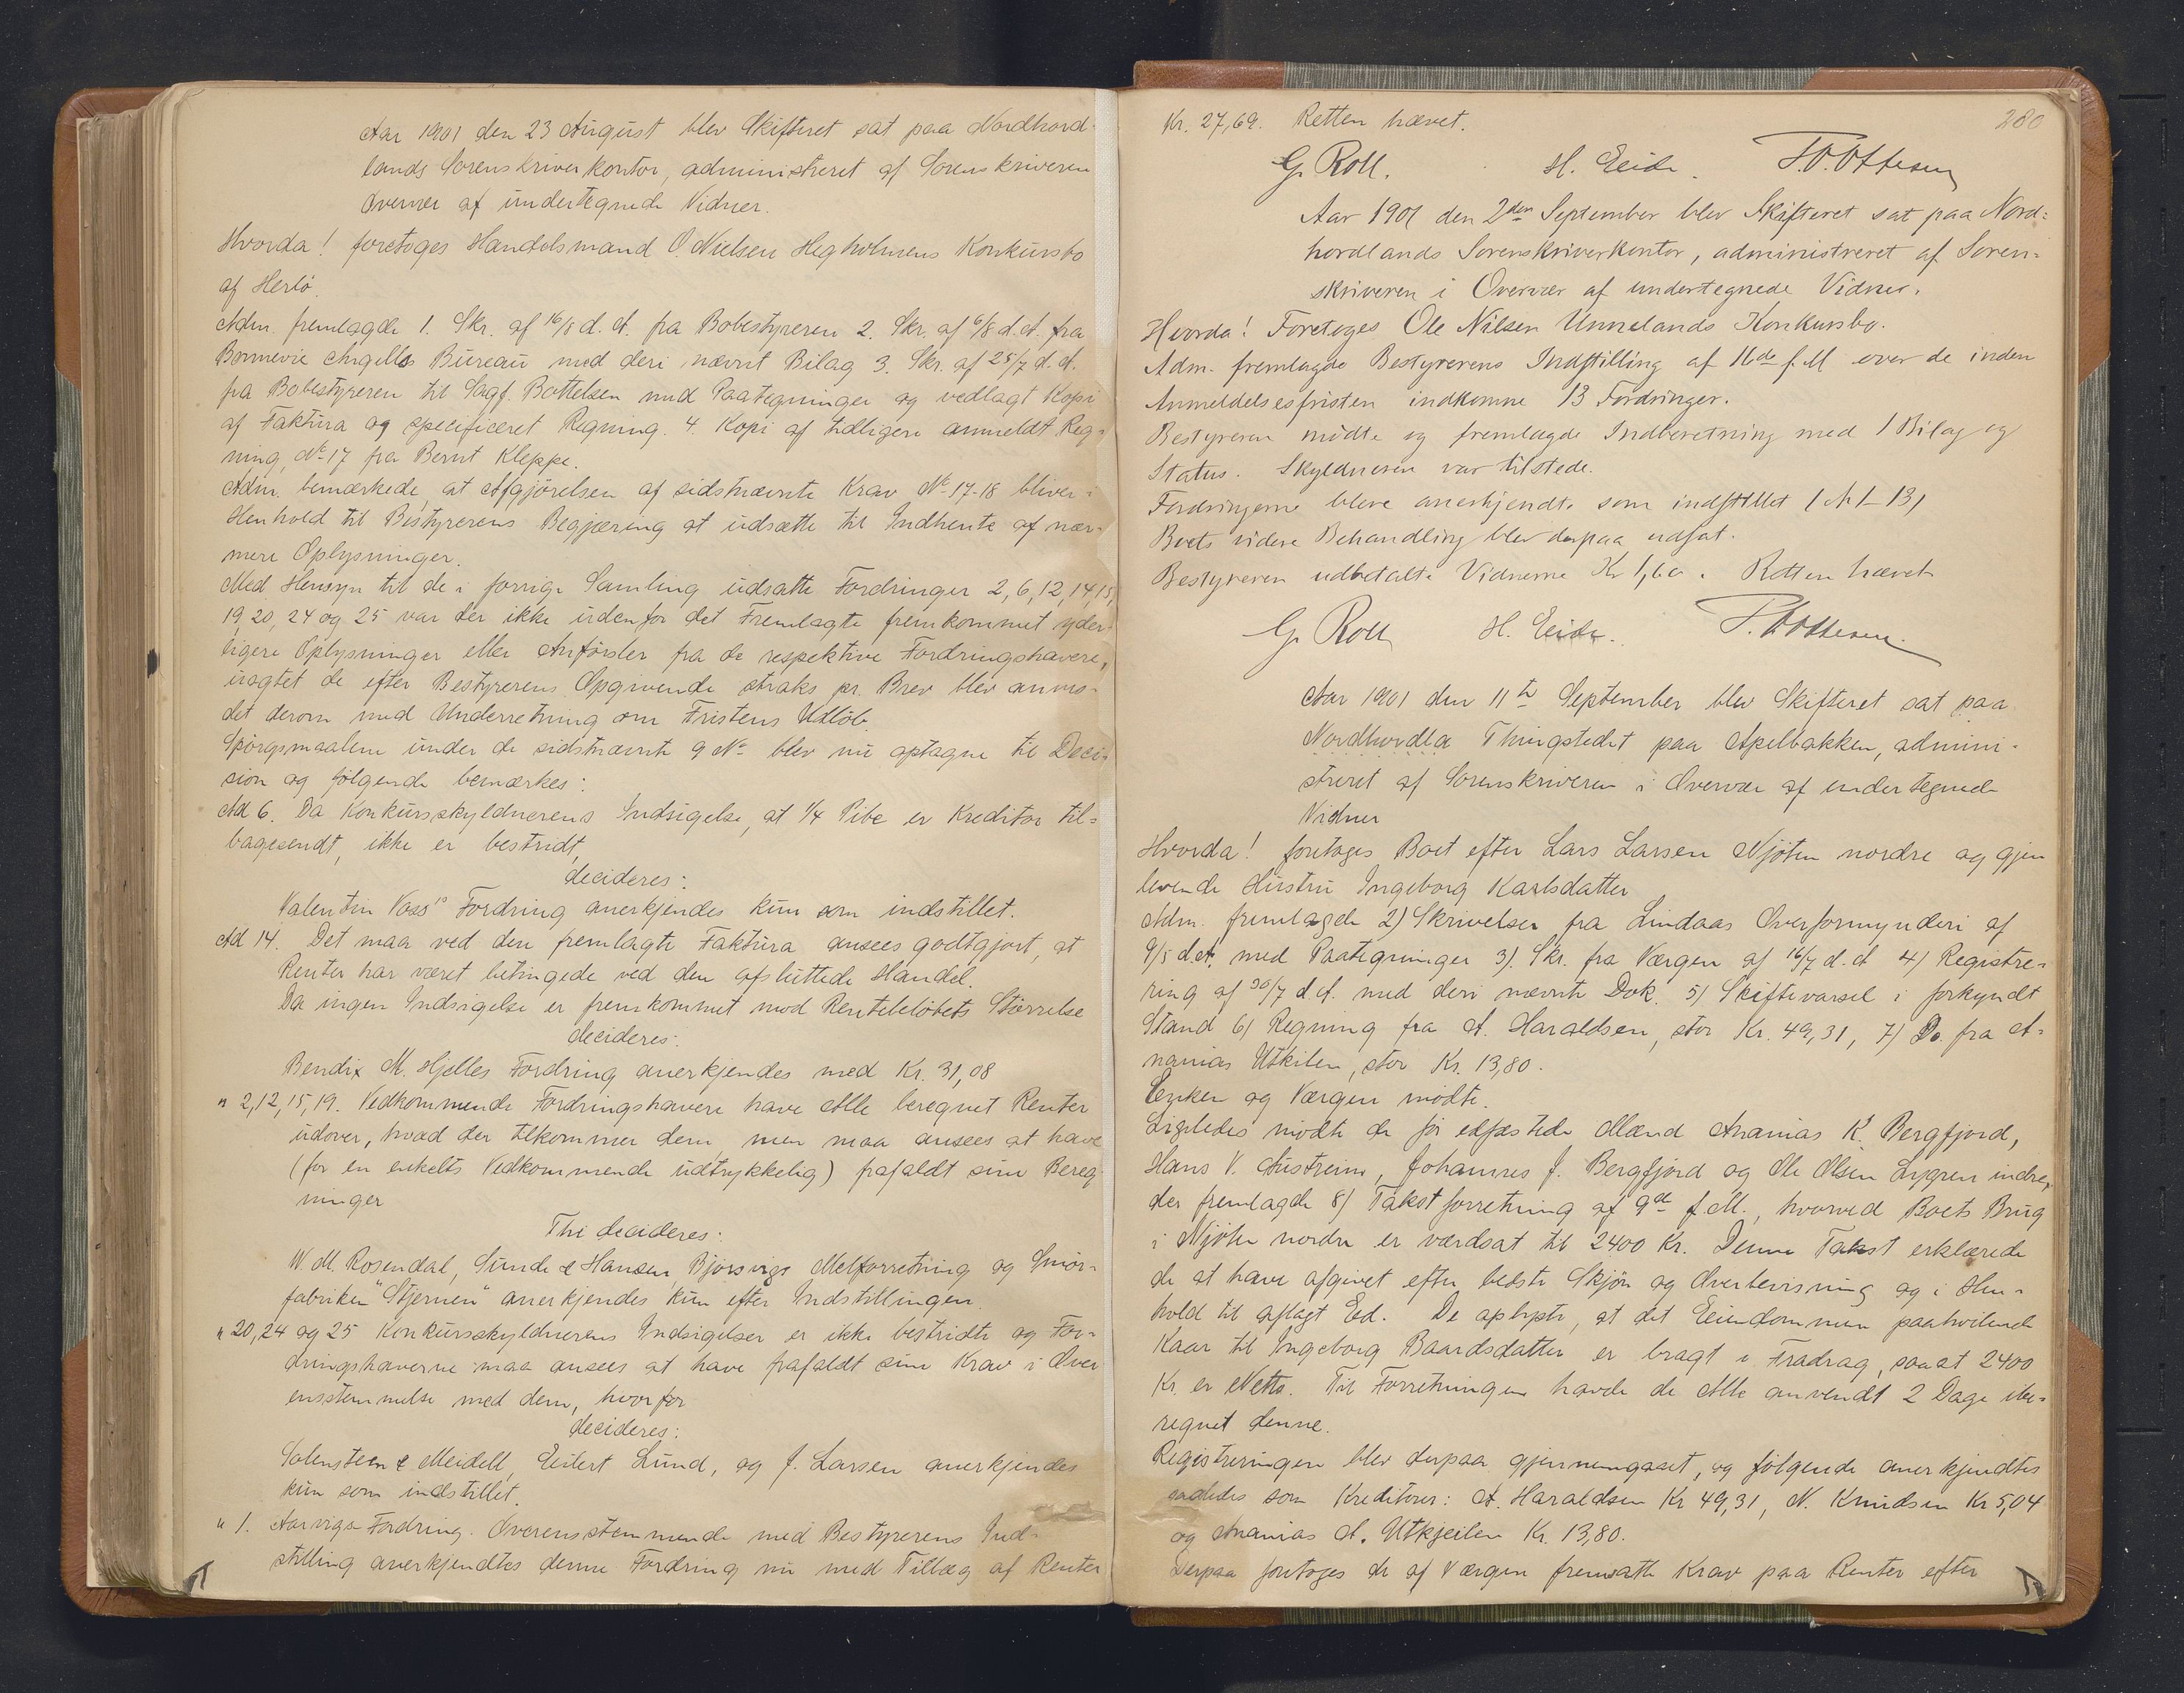 Aar 1901 den 23 August blev Skifteret sat paa Nordhord-
lands Sorenskriverkontor, administreret af Sorenskriveren
Overvær af undertegnede Vidner.
Hvorda! foretoges Handelsmand O. Nielsen Hegholmens Konkursbo
af Herlö.
Adm. fremlagde 1. Skr. af 16/8 d. A. fra Bobestyreren 2. Skr. af 6/8 d. A. fra
Bonnevie Angells Bureau med deri nævnt Bilag 3. Skr. af 25/7 d. A.
fra Bobestyreren til Sagf. Bottelsen med Paategninger og vedlagt Kopi
af Faktura og specificeret Regning. 4. Kopi af tidligere anmeldt Reg-
ning, No 17 fra Bernt Kleppe.
Adm. bemærkede, at Afgjörelsen af sidstnævnte Krav No 17-18 bliver i
Henhold til Bestyrerens Begjæring at udsætte til Indhente af nær-
mere Oplysninger.
Med Hensyn til de i forrige Samling udsatte Fordringer 2, 6, 12, 14, 15,
19, 20, 24 og 25 var der ikke udenfor det Fremlagte fremkommet yder-
ligere Oplysninger eller Anförsler fra de respektive Fordringshavere,
uagtet de efter Bestyrerens Opgivende straks pr. Brev blev anmo-
det derom med Underretning om Fristens Udlöb.
Spörgsmaalene under de sidstnævnte 9 No blev nu optagne til Deci-
sion og fölgende bemærkes:
Ad 6. Da Konkursskyldnerens Indsigelse, at 1/4 Pibe er Kreditor til-
bagesendt, ikke er bestridt,
decideres:
Valentin Voss" Fordring anerkjendes kun som indstillet.
Ad 14. Det maa ved den fremlagte Faktura ansees godtgjort, at
Renter har været betingede ved den afsluttede Handel.
Da ingen Indsigelse er fremkommet mod Rentebelöbets Störrelse
decideres:
Bendix M. Hjelles Fordring anerkjendes med Kr. 31,08
" 2, 12, 15, 19. Vedkommende Fordringshavere have Alle beregnet Renter
udover, hvad der tilkommer dem, men maa ansees at have
(for en enkelts Vedkommende udtrykkelig) frafaldt sine Bereg-
ninger
Thi decideres:
W. M. Rosendal, Sunde & Hansen, Björsvigs Melforretning og Smör-
fabriken "Stjernen" anerkjendes kun efter Indstillingen.
" 20, 24 og 25 Konkursskyldnerens Indsigelser er ikke bestridte og For-
dringshaverne maa ansees at have frafaldt sine Krav i Over-
ensstemmelse med dem, hvorfor
decideres:
Salensteen & Meidell, Eilert Lund, og J. Larsen anerkjendes
kun som indstillet.
" 1. Aarvigs Fordring. Overensstemmende med Bestyrerens Ind-
stilling anerkjendtes denne Fordring nu med Tillæg af Renter
280
Kr. 27,69. Retten hævet.
G. Roll. H. Eide. T. O. Ottesen
Aar 1901 den 2den September blev Skifteret sat paa Nord-
hordlands Sorenskriverkontor, administreret af Soren-
skriveren i Overvær af undertegnede Vidner.
Hvorda! Foretoges Ole Nilsen Unnelands Konkursbo.
Adm. fremlagde Bestyrerens Indstilling af 16de f. M over de inden
Anmeldelsesfristen indkomne 13 Fordringer.
Bestyreren mödte og fremlagde Indberetning med 1 Bilag og
Status. Skyldneren var tilstede.
Fordringerne bleve anerkjendte som indstillet (No 1-13)
Boets videre Behandling blev derpaa udsat.
Bestyreren udbetalte Vidnerne Kr 1,60. Retten hævet
G. Roll H. Eide. T. O. Ottesen.
Aar 1901 den 11te September blev Skifteret sat paa
Nordhordla Thingstedet paa Apelbakken, admini-
streret af Sorenskriveren i Overvær af undertegnede
Vidner
Hvorda! foretoges Boet efter Lars Larsen Njöten nordre og gjen
levende Hustru Ingeborg Karlsdatter
Adm. fremlagde 2) Skrivelse fra Lindaas Overformynderi af
9/5 d.A. med Paategninger 3). Skr. fra Værgen af 16/7 d. A 4) Registre-
ring af 30/7 d A. med deri nævnte Dok. 5) Skiftevarsel i forkyndt
Stand 6) Regning fra A. Haraldsen, stor Kr. 49,31, 7) Do. fra A-
nanias Utkilen, stor Kr. 13,80.
Enken og Værgen mödte.
Ligeledes mödte de för edfæstede Mænd Ananias K. Bergfjord,
Hans V. Austreim, Johannes J. Bergfjord og Ole Olsen Lygren indre,
der fremlagde 8) Takstforretning af 9de f. M., hvorved Boets Brug
i Njöten nordre er værdsat til 2400 Kr. Denne Takst erklærede
de at have afgivet efter bedste Skjön og Overbevisning og i Hen-
hold til aflagt Eed. De oplyste, at det Eiendommen paahvilende
Kaar til Ingeborg Baardsdatter er bragt i Fradrag, saa at 2400
Kr. er Netto. Til Forretningen havde de Alle anvendt 2 Dage ibe-
regnet denne.
Registreringen blev derpaa gjennemgaaet, og fölgende anerkjendtes
saaledes som Kreditorer: A. Haraldsen Kr 49,31, N. Knudsen Kr 5,04
og Ananias A. Utkjeilen Kr. 13,80.
Derpaa foretoges de af Værgen fremsatte Krav paa Renter efter